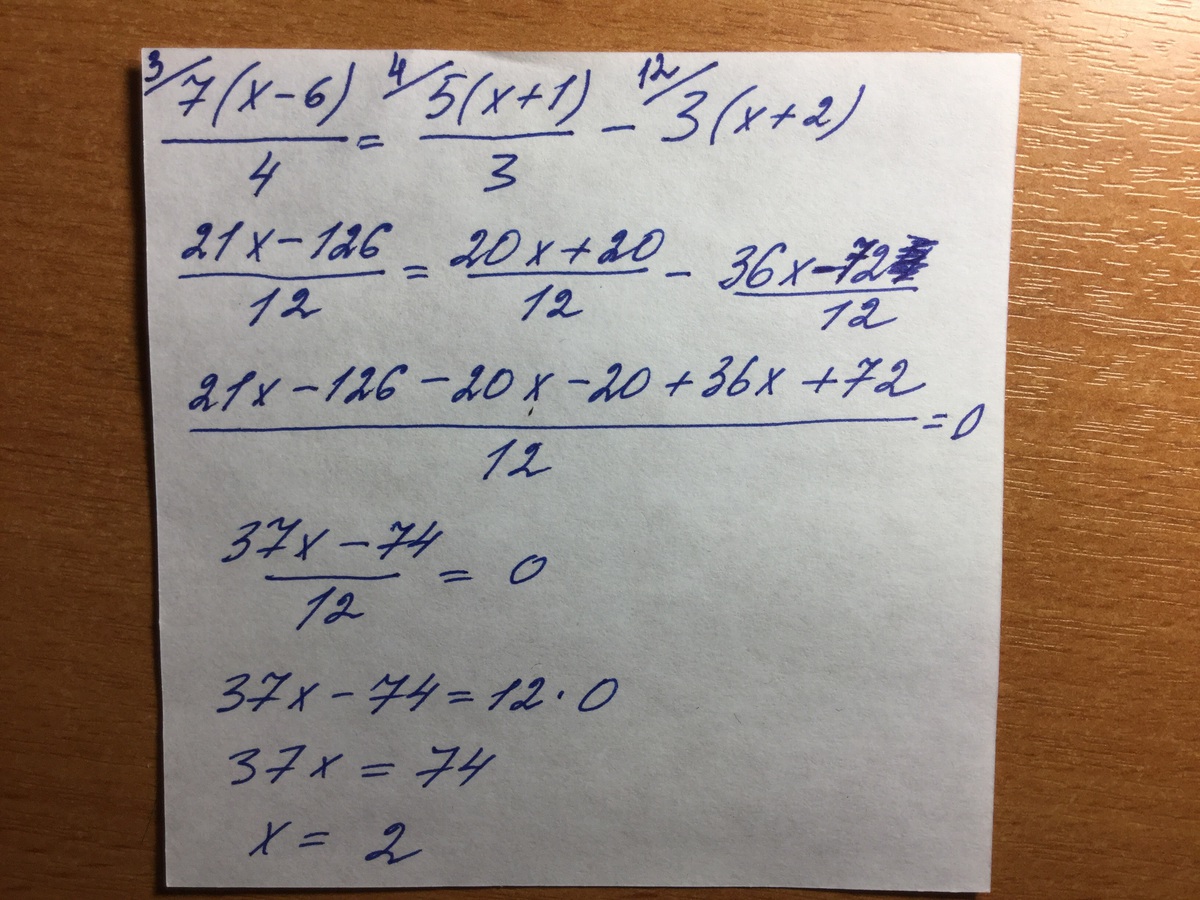 ³/7(x-6)/4 = ⁴/5(x+1)/3 - ¹²/3(x+2)
21x-126/12 = 20x+20/12 - 36x-72/12
21x-126-20x-20+36x+72/12 = 0
37x-74/12 = 0
37x-74=12·0
37x = 74
x = 2